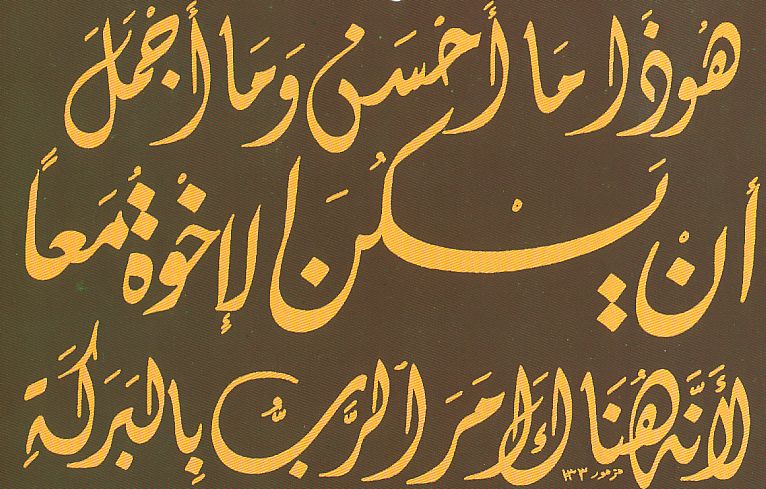 هُوَذَا مَا أَحْسَنَ وَمَا أَجْمَلَ
أَنْ يَسْكُنَ الإِخْوَةُ مَعًا
لأَنَّهُ هُنَاكَ أَمَرَ الرَّبُّ بِالبَرَكَةِ
مزمور ١٣٣